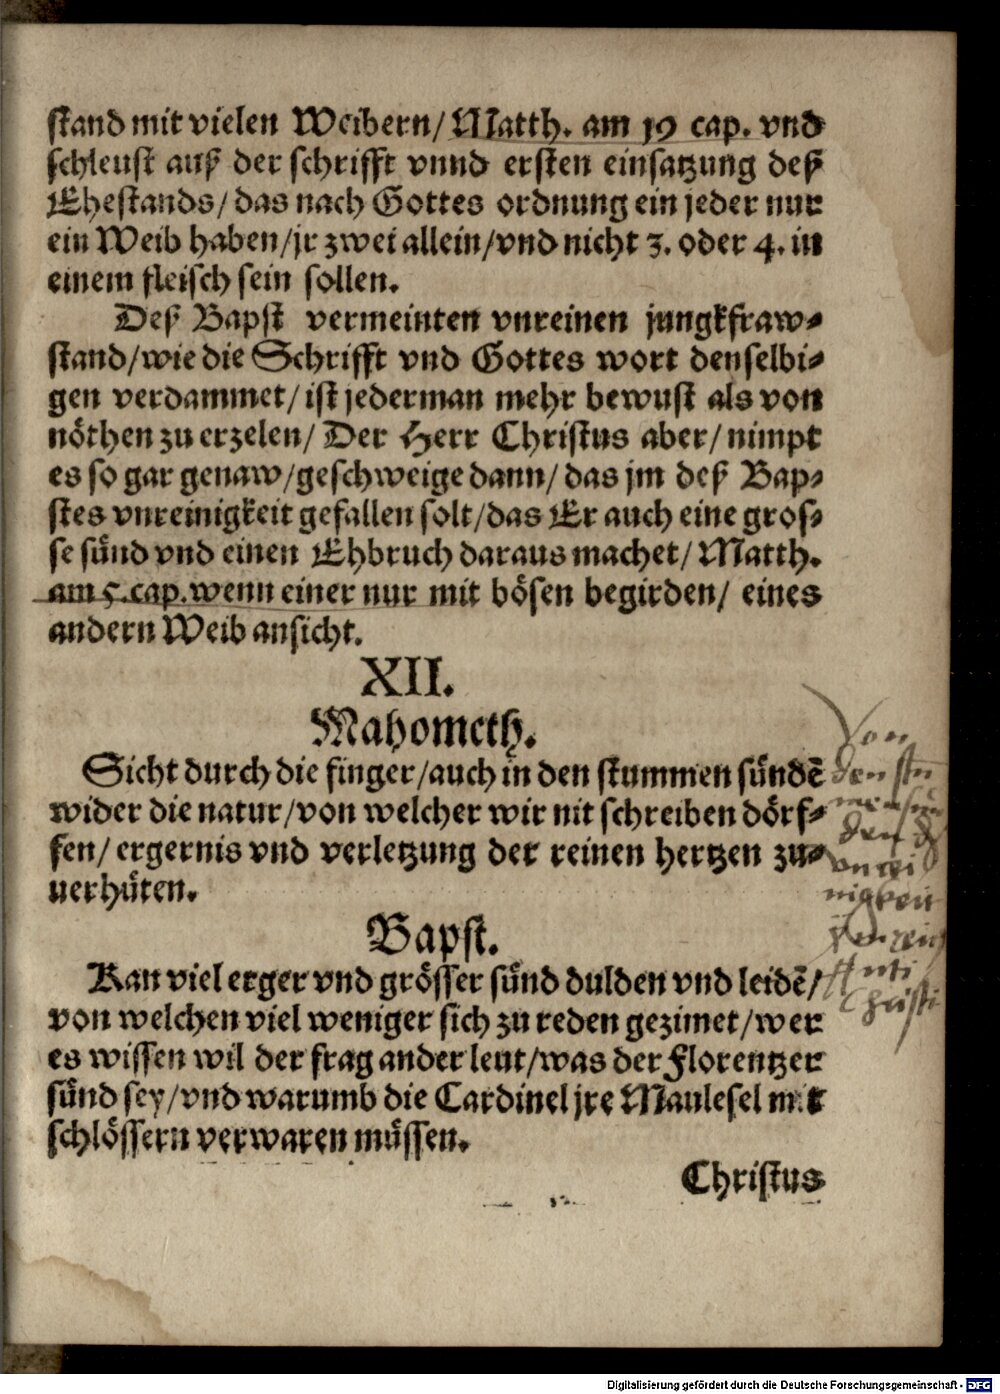 stand mit vielen Weibern/ Matth. am 19 cap. vnd
schleust auß der schrifft vnnd ersten einsatzung deß
Ehestands/ das nach Gottes ordnung ein jeder nur
ein Weib haben/ jr zwei allein/ vnd nicht 3. oder 4. in
einem fleisch sein sollen.
Deß Bapst vermeinten vnreinen jungkfraw-
stand/ wie die Schrifft vnd Gottes wort denselbi-
gen verdammet/ ist jederman mehr bewust als von
nöthen zu erzelen/ Der Herr Christus aber/ nimpt
es so gar genaw/ geschweige dann/ das jm deß Bap-
stes vnreinigkeit gefallen solt/ das Er auch eine gros-
se sünd vnd einen Ehbruch daraus machet/ Matth.
am 5. cap. wenn einer nur mit bösen begirden/ eines
andern Weib ansicht.
XII.
Mahometh.
Sicht durch die finger/ auch in den stummen sündē
wider die natur/ von welcher wir nit schreiben dörf-
fen/ ergernis vnd verletzung der reinen hertzen zu-
uerhüten.
Bapst.
Kan viel erger vnd grösser sünd dulden vnd leidē/
von welchen viel weniger sich zu reden gezimet/ wer
es wissen wil der frag ander leut/ was der Florentzer
sünd sey/ vnd warumb die Cardinel jre Maulesel mit
schlössern verwaren müssen.
Christus
Von
den
Christi
Digitalisierung gefördert durch die Deutsche Forschungsgemeinschaft - DFG